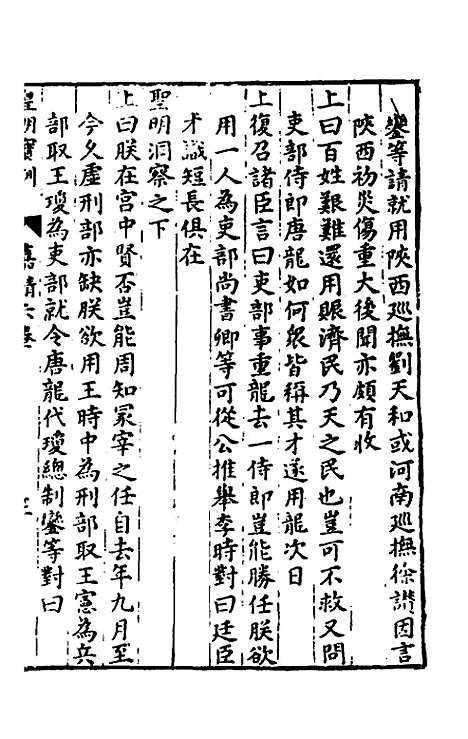 鑾等請就用陝西廵撫劉天和或河南廵撫徐讃因言
陝西初災傷重大後聞亦頗有收
上曰百姓艱難還用賑濟民乃天之民也豈可不救又問
吏部侍郎唐龍如何衆皆稱其才遂用龍次日
上復召諸臣言曰吏部事重龍去一侍郎豈能勝任朕欲
用一人為吏部尚書卿等可從公推舉李時對曰廷臣
才識短長俱在
聖明洞察之下
上曰朕在宮中賢否豈能周知冢宰之任自去年九月至
今久虛刑部亦缺朕欲用王時中為刑部取王憲為兵
部取王瓊為吏部就令唐龍代瓊總制鑾等對曰
皇明寶訓
嘉靖六卷